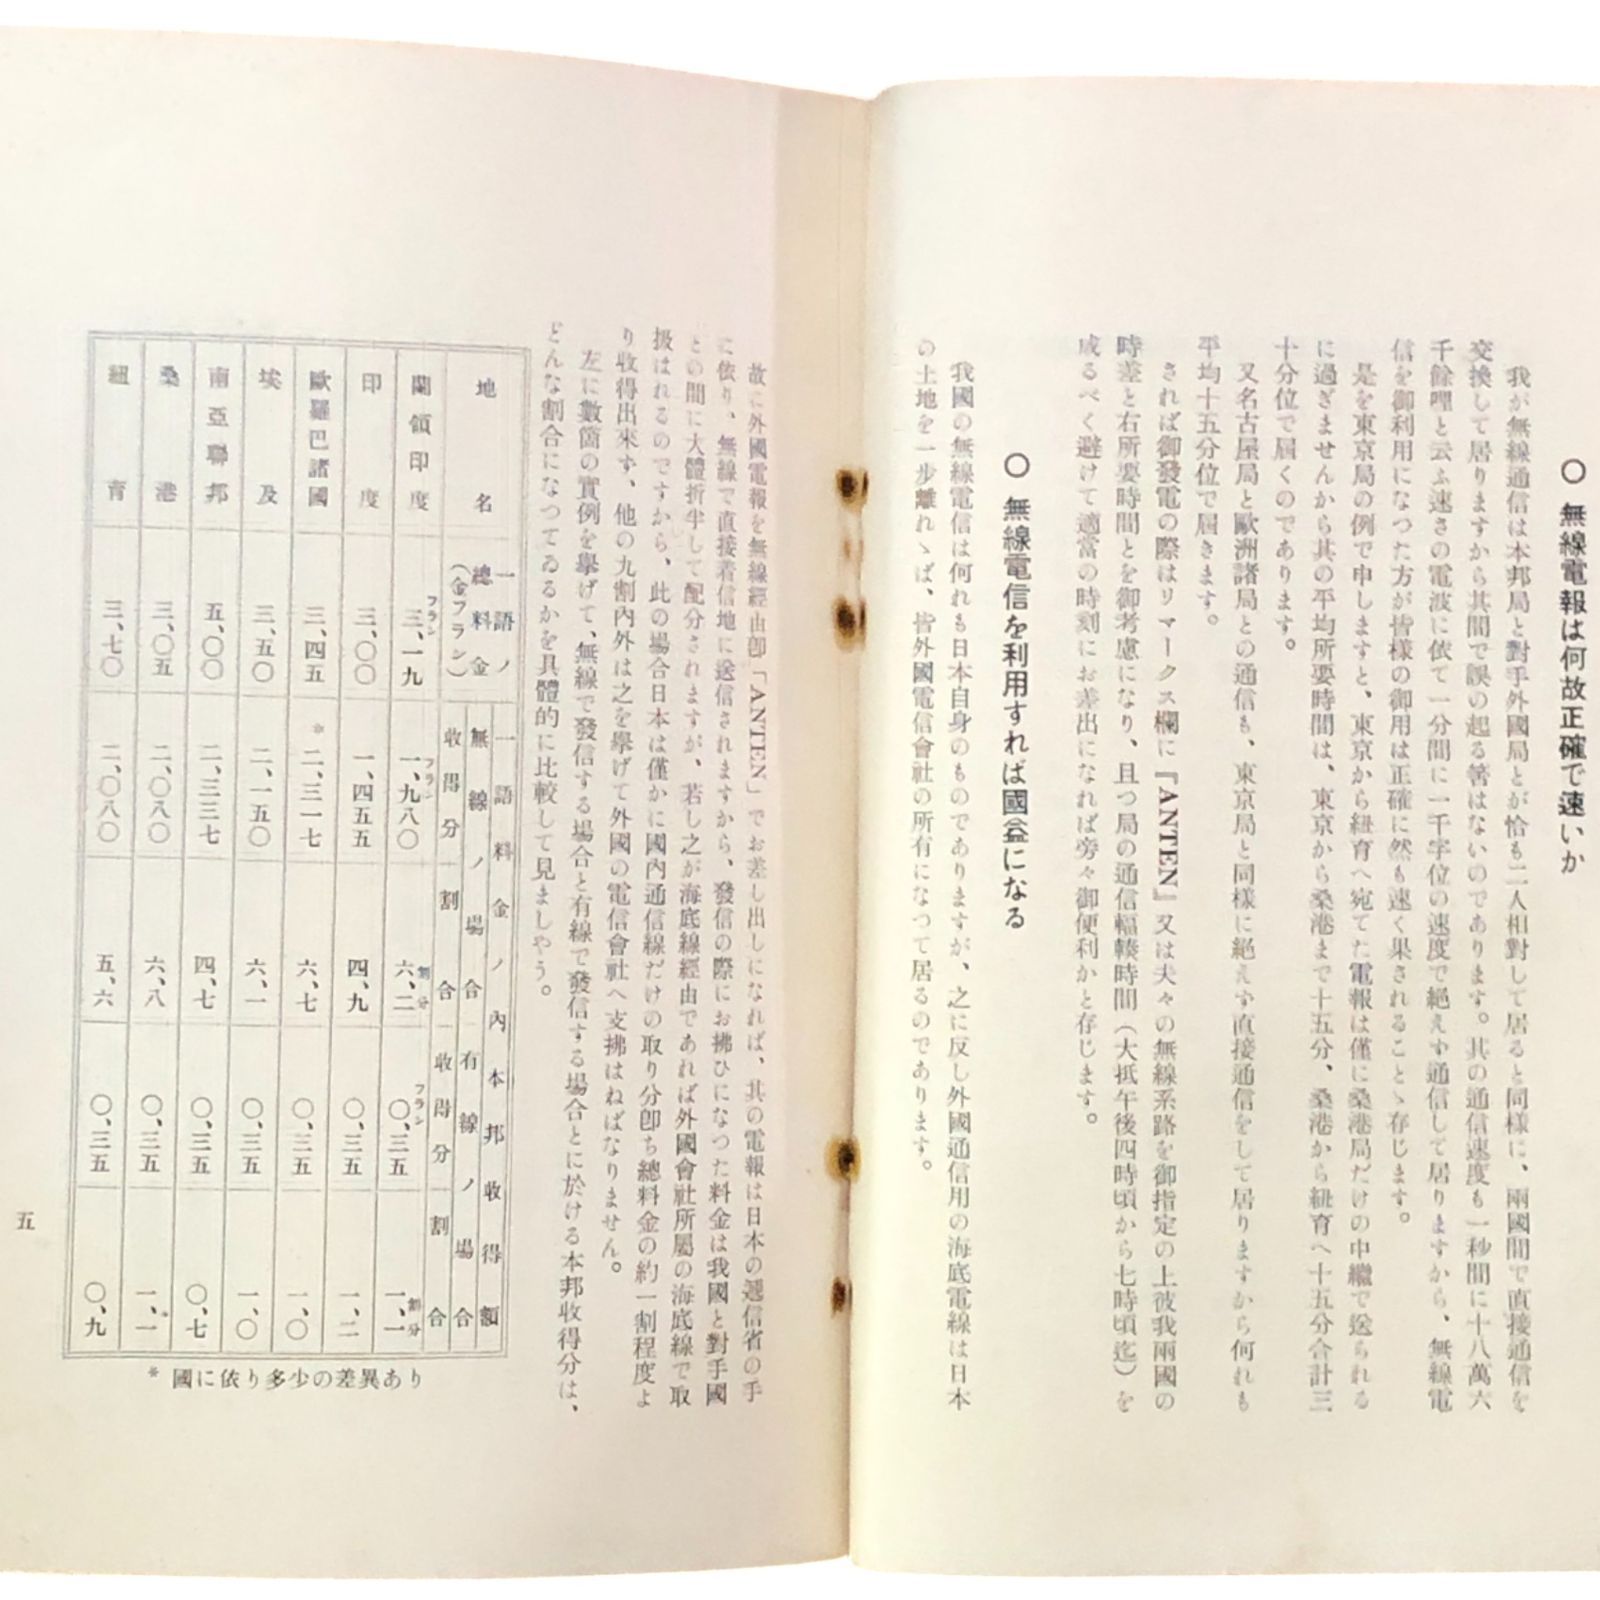 ○ 無線電報は何故正確で速いか
我が無線通信は本邦局と對手外國局とが恰も二人相對して居ると同樣に、兩國間で直接通信を
交換して居りますから其間で誤の起る筈はないのであります。其の通信速度も一秒間に十八萬六
千餘哩と云ふ速さの電波に依て一分間に一千字位の速度で絕えず通信して居りますから、無線電
信を御利用になつた方が皆樣の御用は正確に然も速く果されることゝ存じます。
是を東京局の例で申しますと、東京から紐育へ宛てた電報は僅に桑港局だけの中繼で送られる
に過ぎませんから其の平均所要時間は、東京から桑港まで十五分、桑港から紐育へ十五分合計三
十分位で屆くのであります。
又名古屋局と歐洲諸局との通信も、東京局と同樣に絕えず直接通信をして居りますから何れも
平均十五分位で屆きます。
されば御發電の際はリマークス欄に『ANTEN』又は夫々の無線系路を御指定の上彼我兩國の
時差と右所要時間とを御考慮になり、且つ局の通信輻輳時間(大抵午後四時頃から七時頃迄)を
成るべく避けて適當の時刻にお差出になれば旁々御便利かと存じます。
○ 無線電信を利用すれば國益になる
我國の無線電信は何れも日本自身のものでありますが、之に反し外國通信用の海底電線は日本
の土地を一步離れゝば、皆外國電信會社の所有になつて居るのであります。
故に外國電報を無線經由卽「ANTEN」でお差し出しになれば、其の電報は日本の遞信省の手
に依り、無線で直接着信地に送信されますから、發信の際にお拂ひになつた料金は我國と對手國
との間に大體折半して配分されますが、若し之が海底線經由であれば外國會社所屬の海底線で取
扱はれるのですから、此の場合日本は僅かに國內通信線だけの取り分卽ち總料金の約一割程度よ
り收得出來ず、他の九割內外は之を擧げて外國の電信會社へ支拂はねばなりません。
左に數箇の實例を擧げて、無線で發信する場合と有線で發信する場合とに於ける本邦收得分は、
どんな割合になつてゐるかを具體的に比較して見ましやう。
地名 一語ノ總料金(金フラン) 一語料金ノ內本邦收得額
無線ノ場合 有線ノ場合
收得分 割合 收得分 割合
蘭領印度 三、一九フラン 一、九八〇フラン 六、二割分 〇、三五フラン 一、一割分
印度 三、〇〇 一、四五五 四、九 〇、三五 一、二
歐羅巴諸國 三、四五 *二、三一七 六、七 〇、三五 一、〇
埃及 三、五〇 二、一五〇 六、一 〇、三五 一、〇
南亞聯邦 五、〇〇 二、三三七 四、七 〇、三五 〇、七
桑港 三、〇五 二、〇八〇 六、八 〇、三五 一、一*
紐育 三、七〇 二、〇八〇 五、六 〇、三五 〇、九
* 國に依り多少の差異あり
五